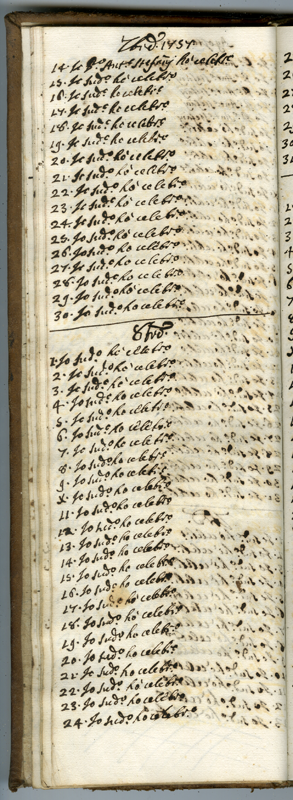 7bre 1757
14. Io D. Ant.o Stefani ho celebr.o
15. Io sud.o ho celebr.o
16. Io sud.o ho celebr.o
17. Io sud.o ho celebr.o
18. Io sud.o ho celebr.o
19. Io sud.o ho celebr.o
20. Io sud.o ho celebr.o
21. Io sud.o ho celebr.o
22. Io sud.o ho celebr.o
23. Io sud.o ho celebr.o
24. Io sud.o ho celebr.o
25. Io sud.o ho celebr.o
26. Io sud.o ho celebr.o
27. Io sud.o ho celebr.o
28. Io sud.o ho celebr.o
29. Io sud.o ho celebr.o
30. Io sud.o ho celebr.o
8bre
1. Io sud.o ho celebr.o
2. Io sud.o ho celebr.o
3. Io sud.o ho celebr.o
4. Io sud.o ho celebr.o
5. Io sud.o ho celebr.o
6. Io sud.o ho celebr.o
7. Io sud.o ho celebr.o
8. Io sud.o ho celebr.o
9. Io sud.o ho celebr.o
X. Io sud.o ho celebr.o
11. Io sud.o ho celebr.o
12. Io sud.o ho celebr.o
13. Io sud.o ho celebr.o
14. Io sud.o ho celebr.o
15. Io sud.o ho celebr.o
16. Io sud.o ho celebr.o
17. Io sud.o ho celebr.o
18. Io sud.o ho celebr.o
19. Io sud.o ho celebr.o
20. Io sud.o ho celebr.o
21. Io sud.o ho celebr.o
22. Io sud.o ho celebr.o
23. Io sud.o ho celebr.o
24. Io sud.o ho celebr.o